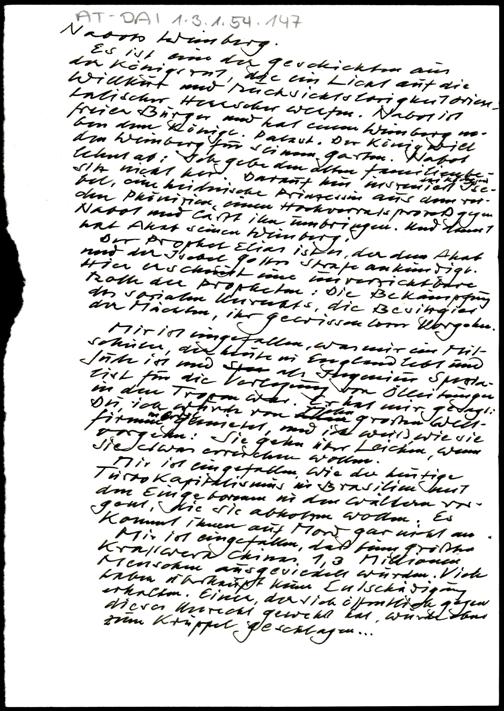 AT-DAI 1.3.1.54.147
Nabots Weinberg.
Es ist eine der Geschichten aus
der Königszeit, die ein Licht auf die
Willkür und Rücksichtslosigkeit orien-
talischer Herrscher werfen. Nabot ist
freier Bürger und hat einen Weinberg ne-
ben dem Königs-Palast. Der König will
den Weinberg für seinen Garten. Nabot
lehnt ab: Ich gebe den alten Familienbe-
sitz nicht her. Darauf hin inszeniert Ise-
bel, eine heidnische Prinzessin aus dem
den Phönizien, einen Hochverratsprozeß gegen
Nabot und läßt ihn umbringen. Und damit
hat Ahab seinen Weinberg.
Der Prophet Elias ist es, der dem Ahab
und der Isebel Gottes Strafe ankündigt.
Hier erscheint eine unverzichtbare
Rolle der Propheten: Die Bekämpfung
des sozialen Unrechts, die
der Mächten, ihr gewissenloses Vorgehen.
Mir ist eingefallen, was mir ein Mit-
schüler, der heute in England lebt und
Jude ist und als Ingenieur Spezia-
list für die Verlegung von Ölleitungen
in den Tropen war. Er hat mir gesagt:
Du, ich von großen Welt-
firmen, und ich weiß wie sie
vorgehen: Sie gehn über Leichen, wenn
sie etwas erreichen wollen.
Mir ist eingefallen wie der heutige
Turbokapitalismus in Brasilien mit
den Eingeborenen in den Wäldern vor-
geht, die sie abholzen wollen. Es
kommt ihnen auf Mord gar nicht an.
Mir ist eingefallen, daß beim größten
Kraftwerk Chinas 1,3 Millionen
Menschen ausgesiedelt wurden. Viele
haben überhaupt keine Entschädigung
erhalten. Einer, der sich öffentlich gegen
dieses Unrecht gewehrt hat, wurde eben
zum Krüppel geschlagen...